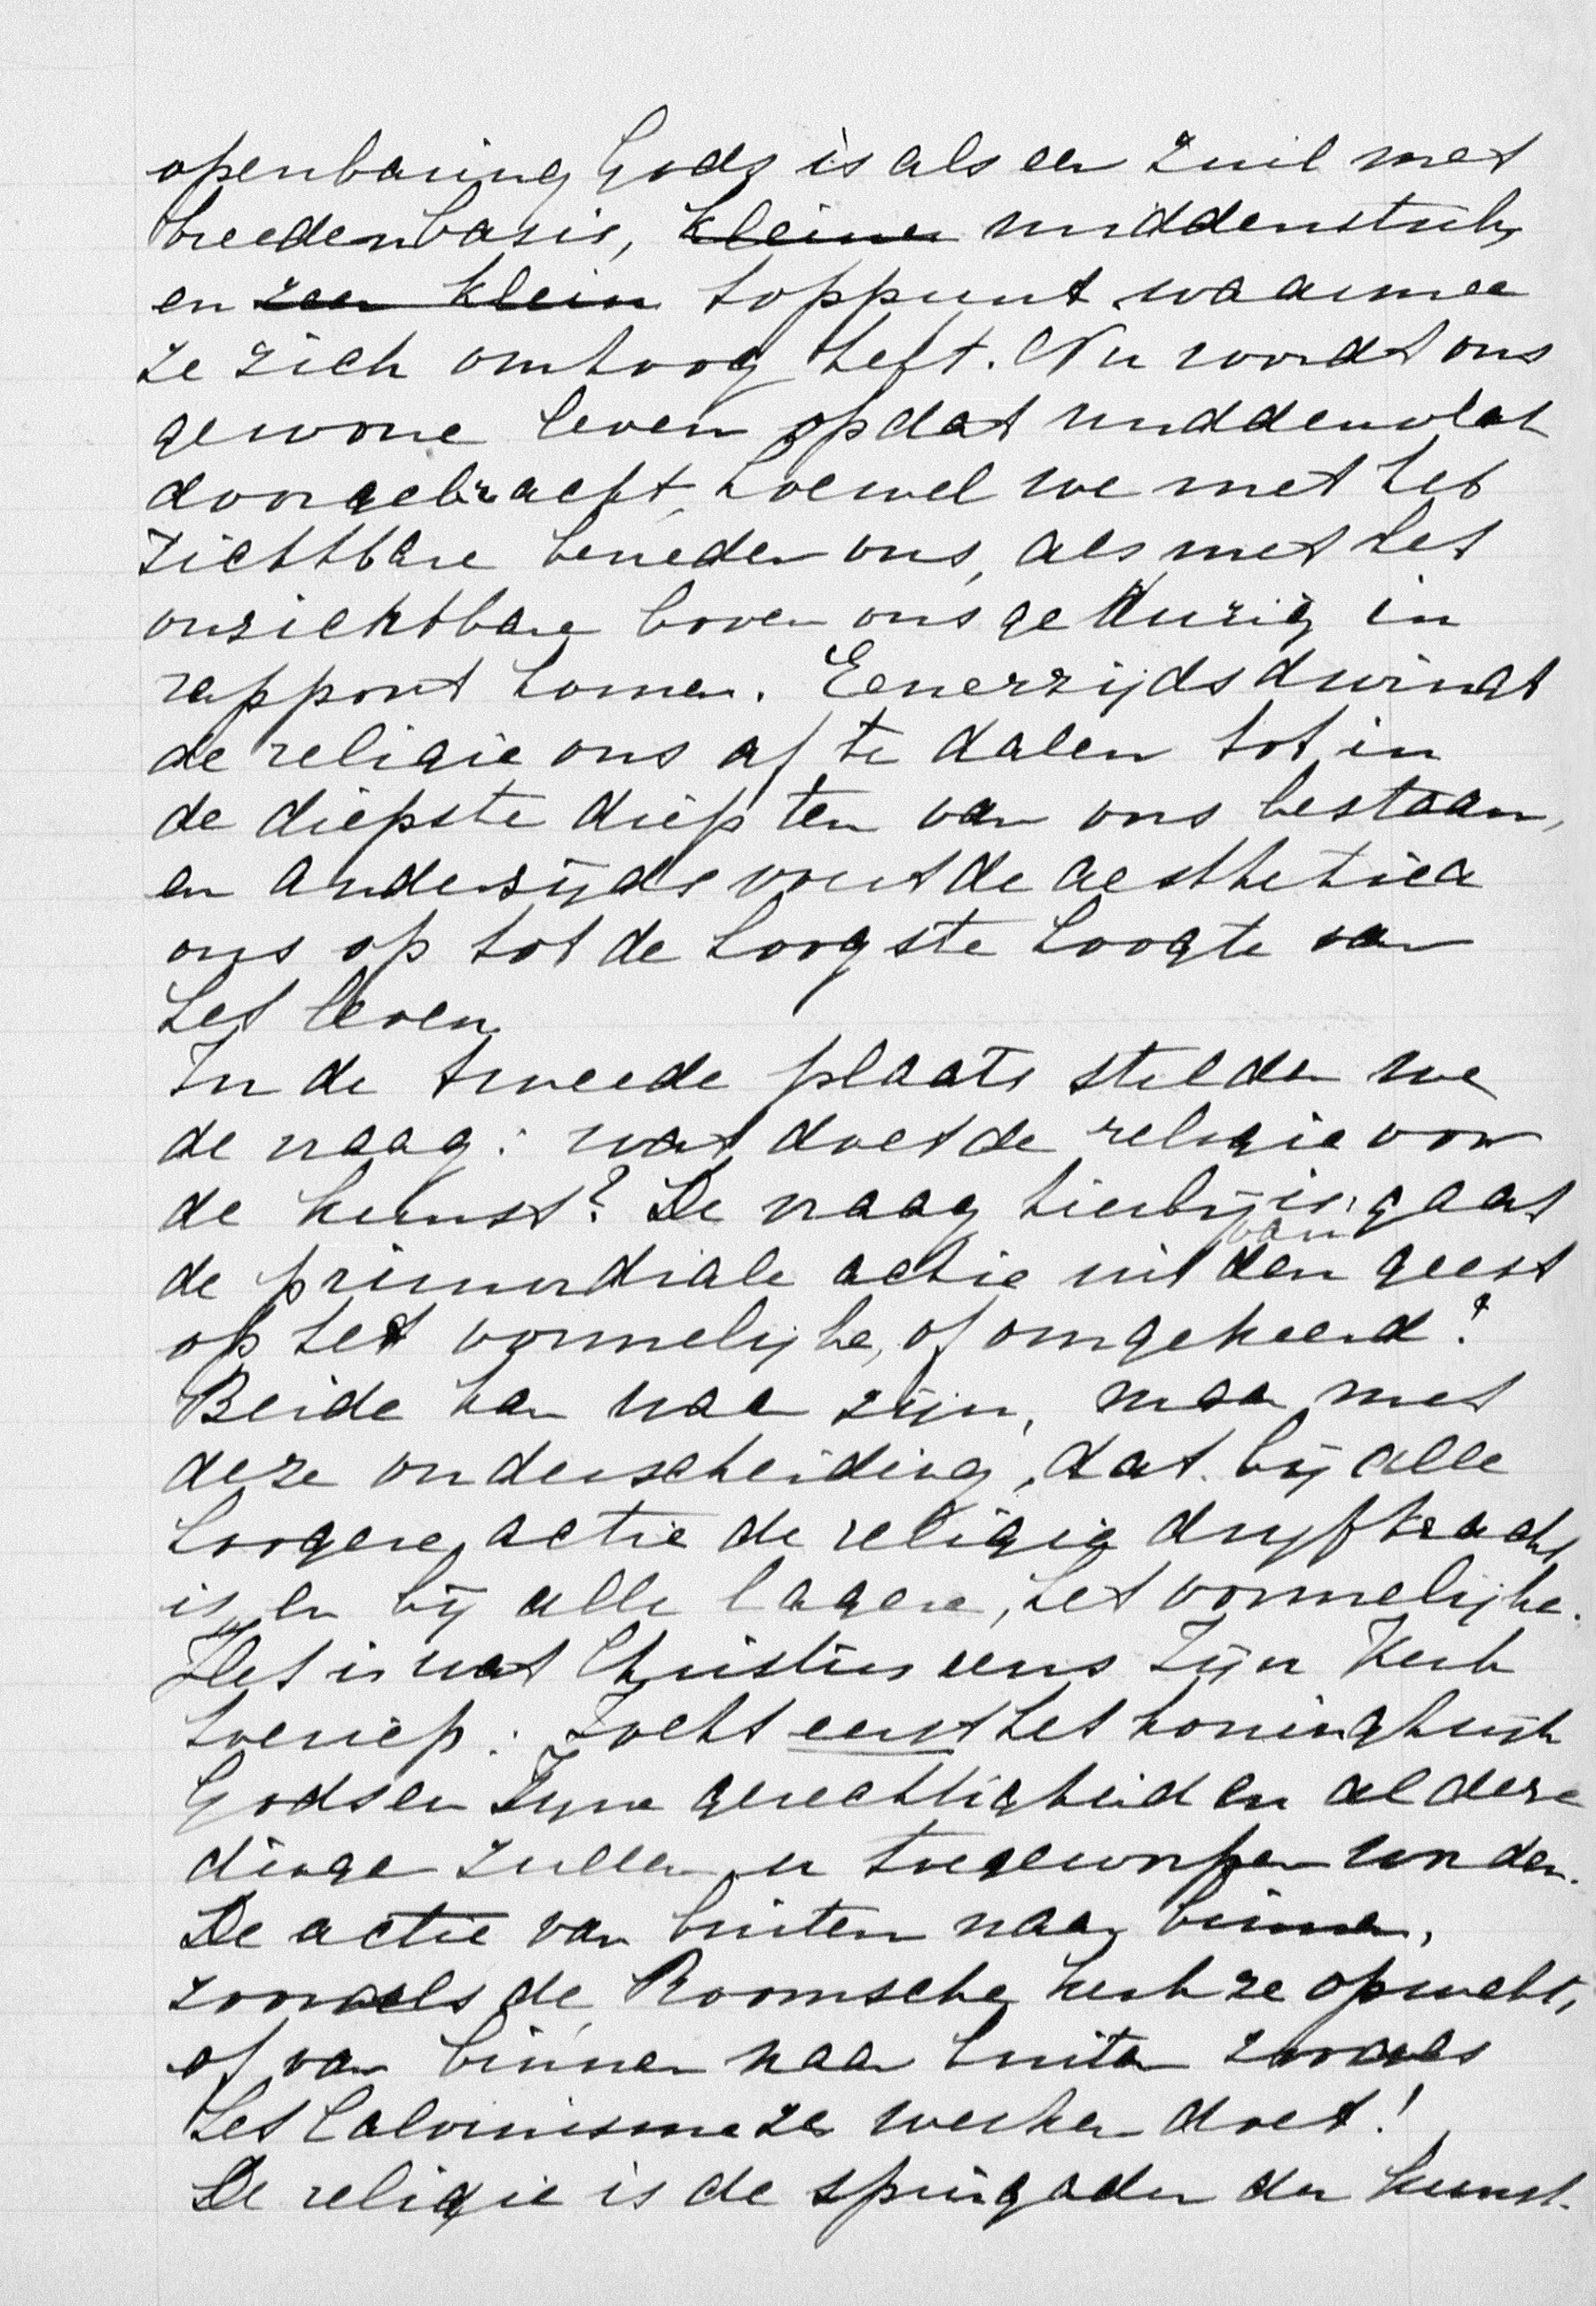 openbaring Gods is als een zuil met
breeden basis, kleiner middenstuk,
en zeer klein toppunt waarmee
ze zich omhoog heft. Nu wordt ons
gewone leven op dat middenvlak
doorgebracht, hoewel we met het
zichtbare beneden ons, als met het
onzichtbare boven ons gedurig in
rapport komen. Eenerzijds dwingt
de religie ons af te dalen tot in
de diepste diepten van ons bestaan,
en anderzijds voert de aesthetica
ons op tot de hoogste hoogte van
het leven.
In de tweede plaats stelden we
de vraag: wat doet de religie voor
de kunst? De vraag hierbij is: gaat
de primordiale actie uit van den geest
op het vormelijke, of omgekeerd?
Beide kan waar zijn, maar met
deze onderscheiding, dat bij alle
hoogere actie de religie drijfkracht
is, en bij alle lagere, het vormelijke.
Het is wat Christus eens Zijn Kerk
toeriep: Zoekt eerst het koninghrijk
Gods en Zijne gerechtigheid en al deze
dingen zullen u toegeworpen worden.
De actie van buiten naar binnen,
zooals de Roomsche kerk ze opwekt,
of van binnen naar buiten zooals
het Calvinisme ze werken doet!
De religie is de springader der kunst.